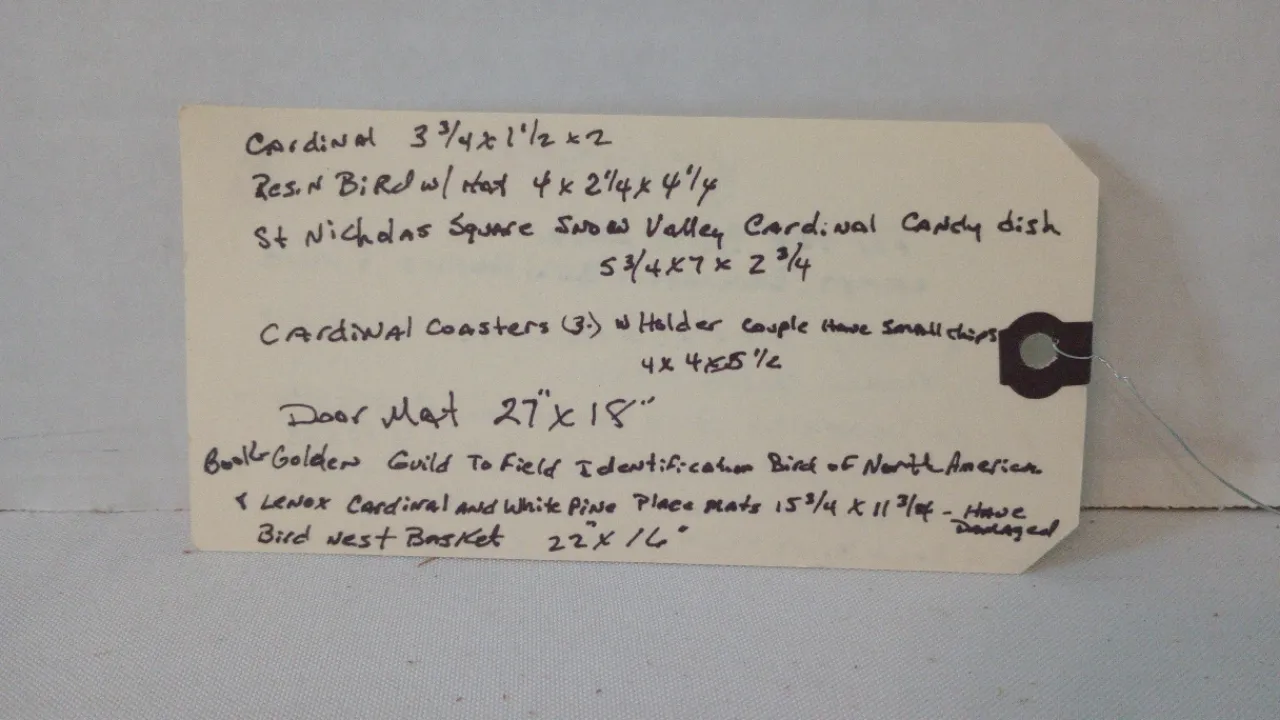 Cardinal 3 3/4 x 1 1/2 x 2
Resin Bird w/ Hat 4 x 2 1/4 x 4 1/4
St Nicholas Square Snow Valley Cardinal Candy dish
5 3/4 x 7 x 2 3/4
Cardinal Coasters (3.) w Holder couple Have small chips
4 x 4 x 5 1/2
Door Mat 27" x 18"
Book Golden Guild To Field Identification Bird of North American
& Lenox Cardinal and White Pine Place mats 15 3/4 x 11 3/4 - Have
Damaged
Bird Nest Basket 22" x 16"